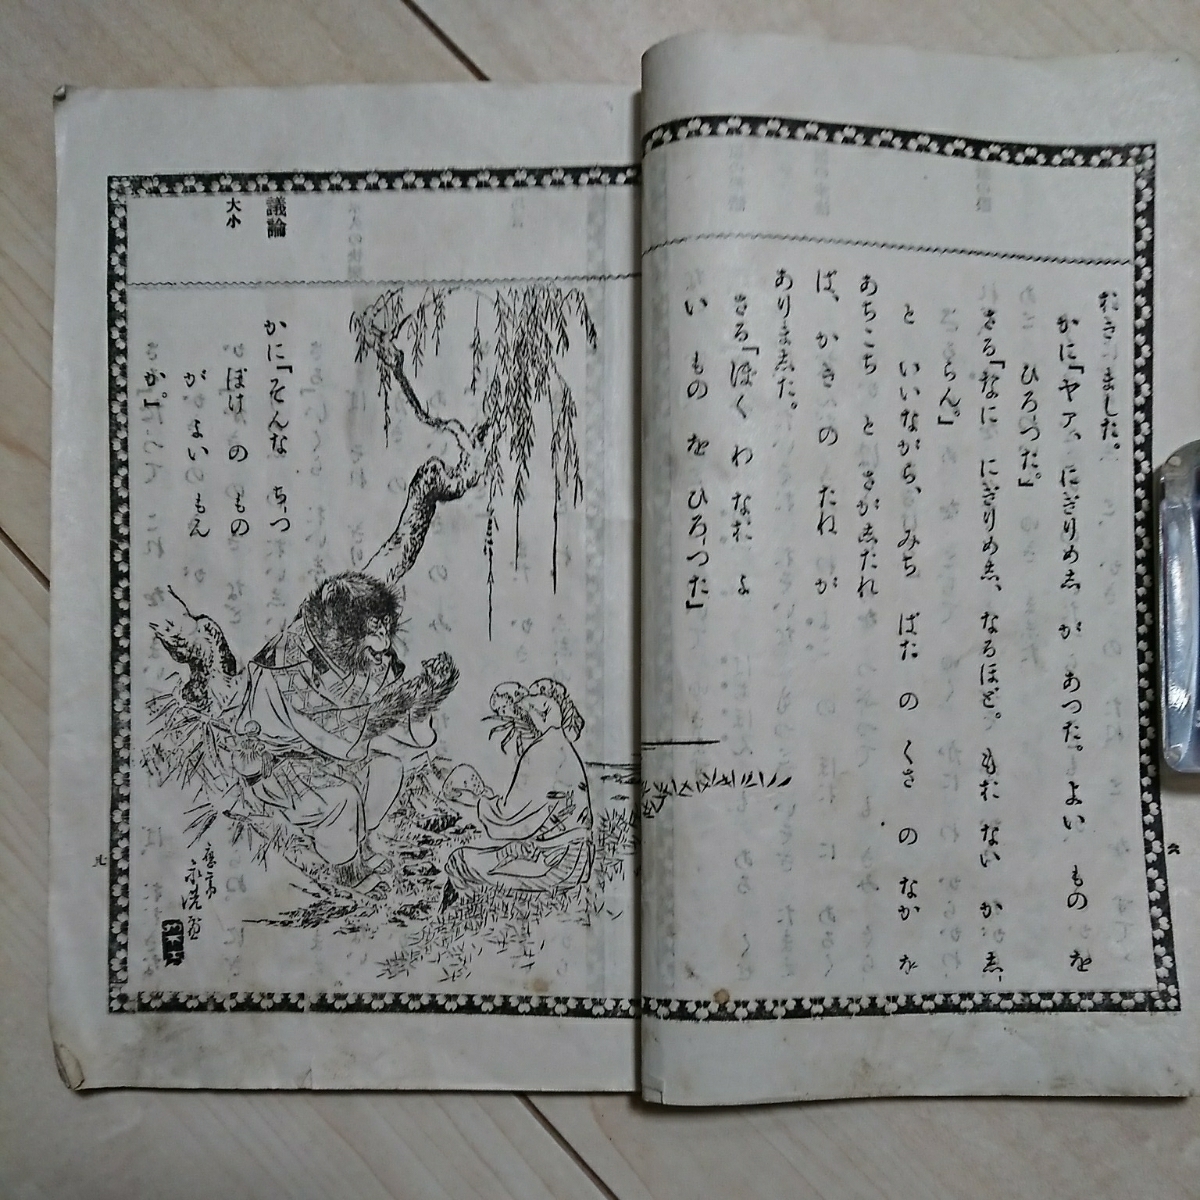 むきにました。
かに「ヤア、にぎりめ志 が あつた。よい もの を
ひろつた。」
さる「なに にぎりめ志、なるほど。もだ ない か 志
らん。」
と いいながら、みち ばた の くさ の なか を
あちこち と さが志たれ
ば、かき の たね が
ありま志た。
さる「ぼく わ なほ よ
い もの を ひろつた」
六
議論
大小
かに「そんな ちつ
ぽけ の もの
が よい もん
か。」
九